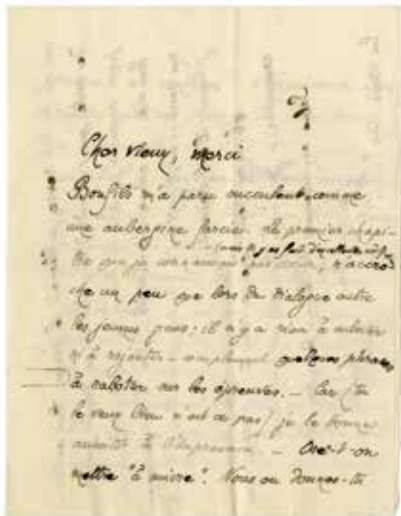 Cher vieux, merci
Bonfils m'a paru succulent comme
une aubergine farcie. Le premier chapi-
tre que je connaissais
che un peu que lors du dialogue entre
les jeunes gens ; il n'y a rien à enlever
n'à rajouter - simplement quelques phrases
à raboter sur les épreuves. - Car (tu
le veux bien n'est ce pas) je le donne
aussitôt à l'impression. - Ose-t-on
mettre "à suivre". Nous en donnes-tu